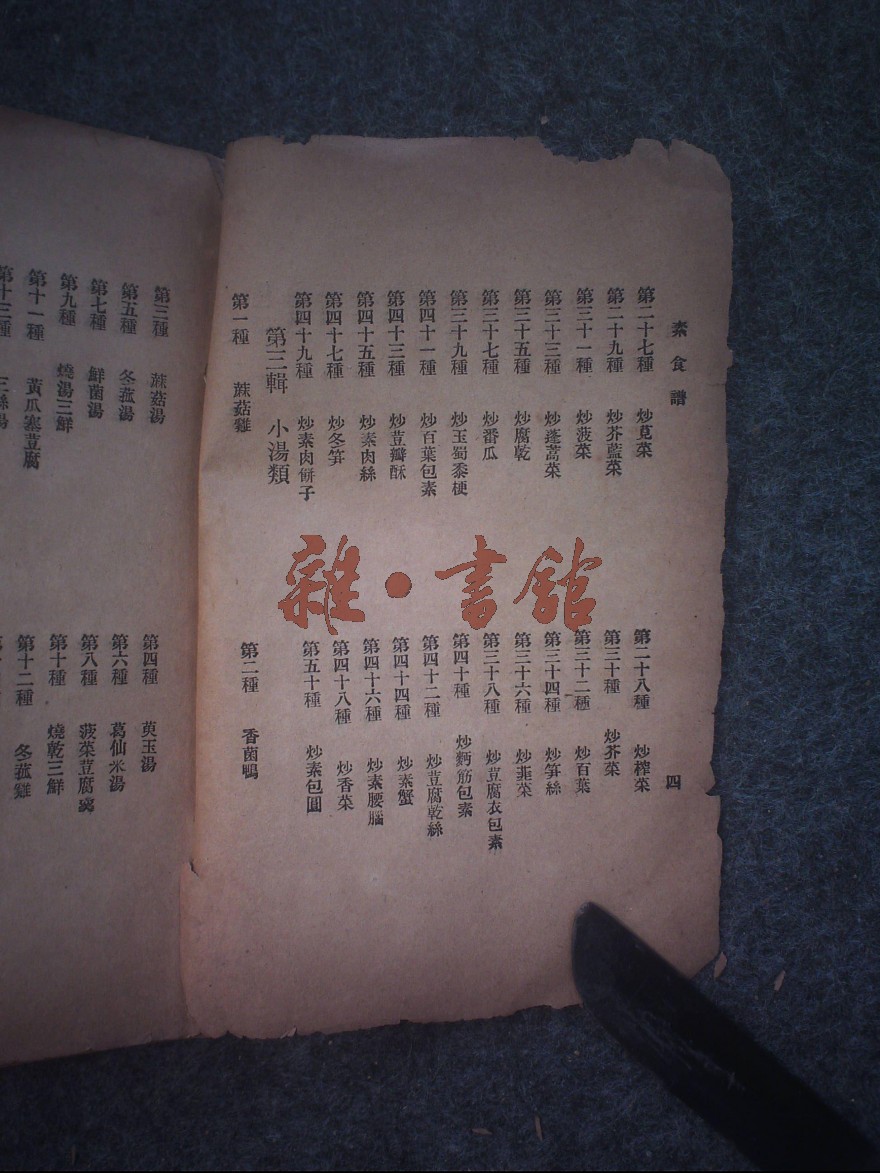 素食譜
四
第二十七種 炒莧菜
第二十八種 炒榨菜
第二十九種 炒芥藍菜
第三十種 炒芥菜
第三十一種 炒菠菜
第三十二種 炒百葉
第三十三種 炒蓬蒿菜
第三十四種 炒筍絲
第三十五種 炒腐乾
第三十六種 炒韮菜
第三十七種 炒番瓜
第三十八種 炒荳腐衣包素
第三十九種 炒玉蜀黍梗
第四十種 炒麪筋包素
第四十一種 炒百葉包素
第四十二種 炒荳腐乾絲
第四十三種 炒荳瓣酥
第四十四種 炒素蟹
第四十五種 炒素肉絲
第四十六種 炒素腰腦
第四十七種 炒冬笋
第四十八種 炒香菜
第四十九種 炒素肉餅子
第五十種 炒素包圓
第三輯 小湯類
第一種 蔴菇雞
第二種 香菌鴨
第三種 蔴菇湯
第四種 萸玉湯
第五種 冬菰湯
第六種 葛仙米湯
第七種 鮮菌湯
第八種 菠菜荳腐羹
第九種 燒湯三鮮
第十種 燒乾三鮮
第十一種 黃瓜塞荳腐
第十二種 冬菰雞
第十三種 三絲湯
雜·書館